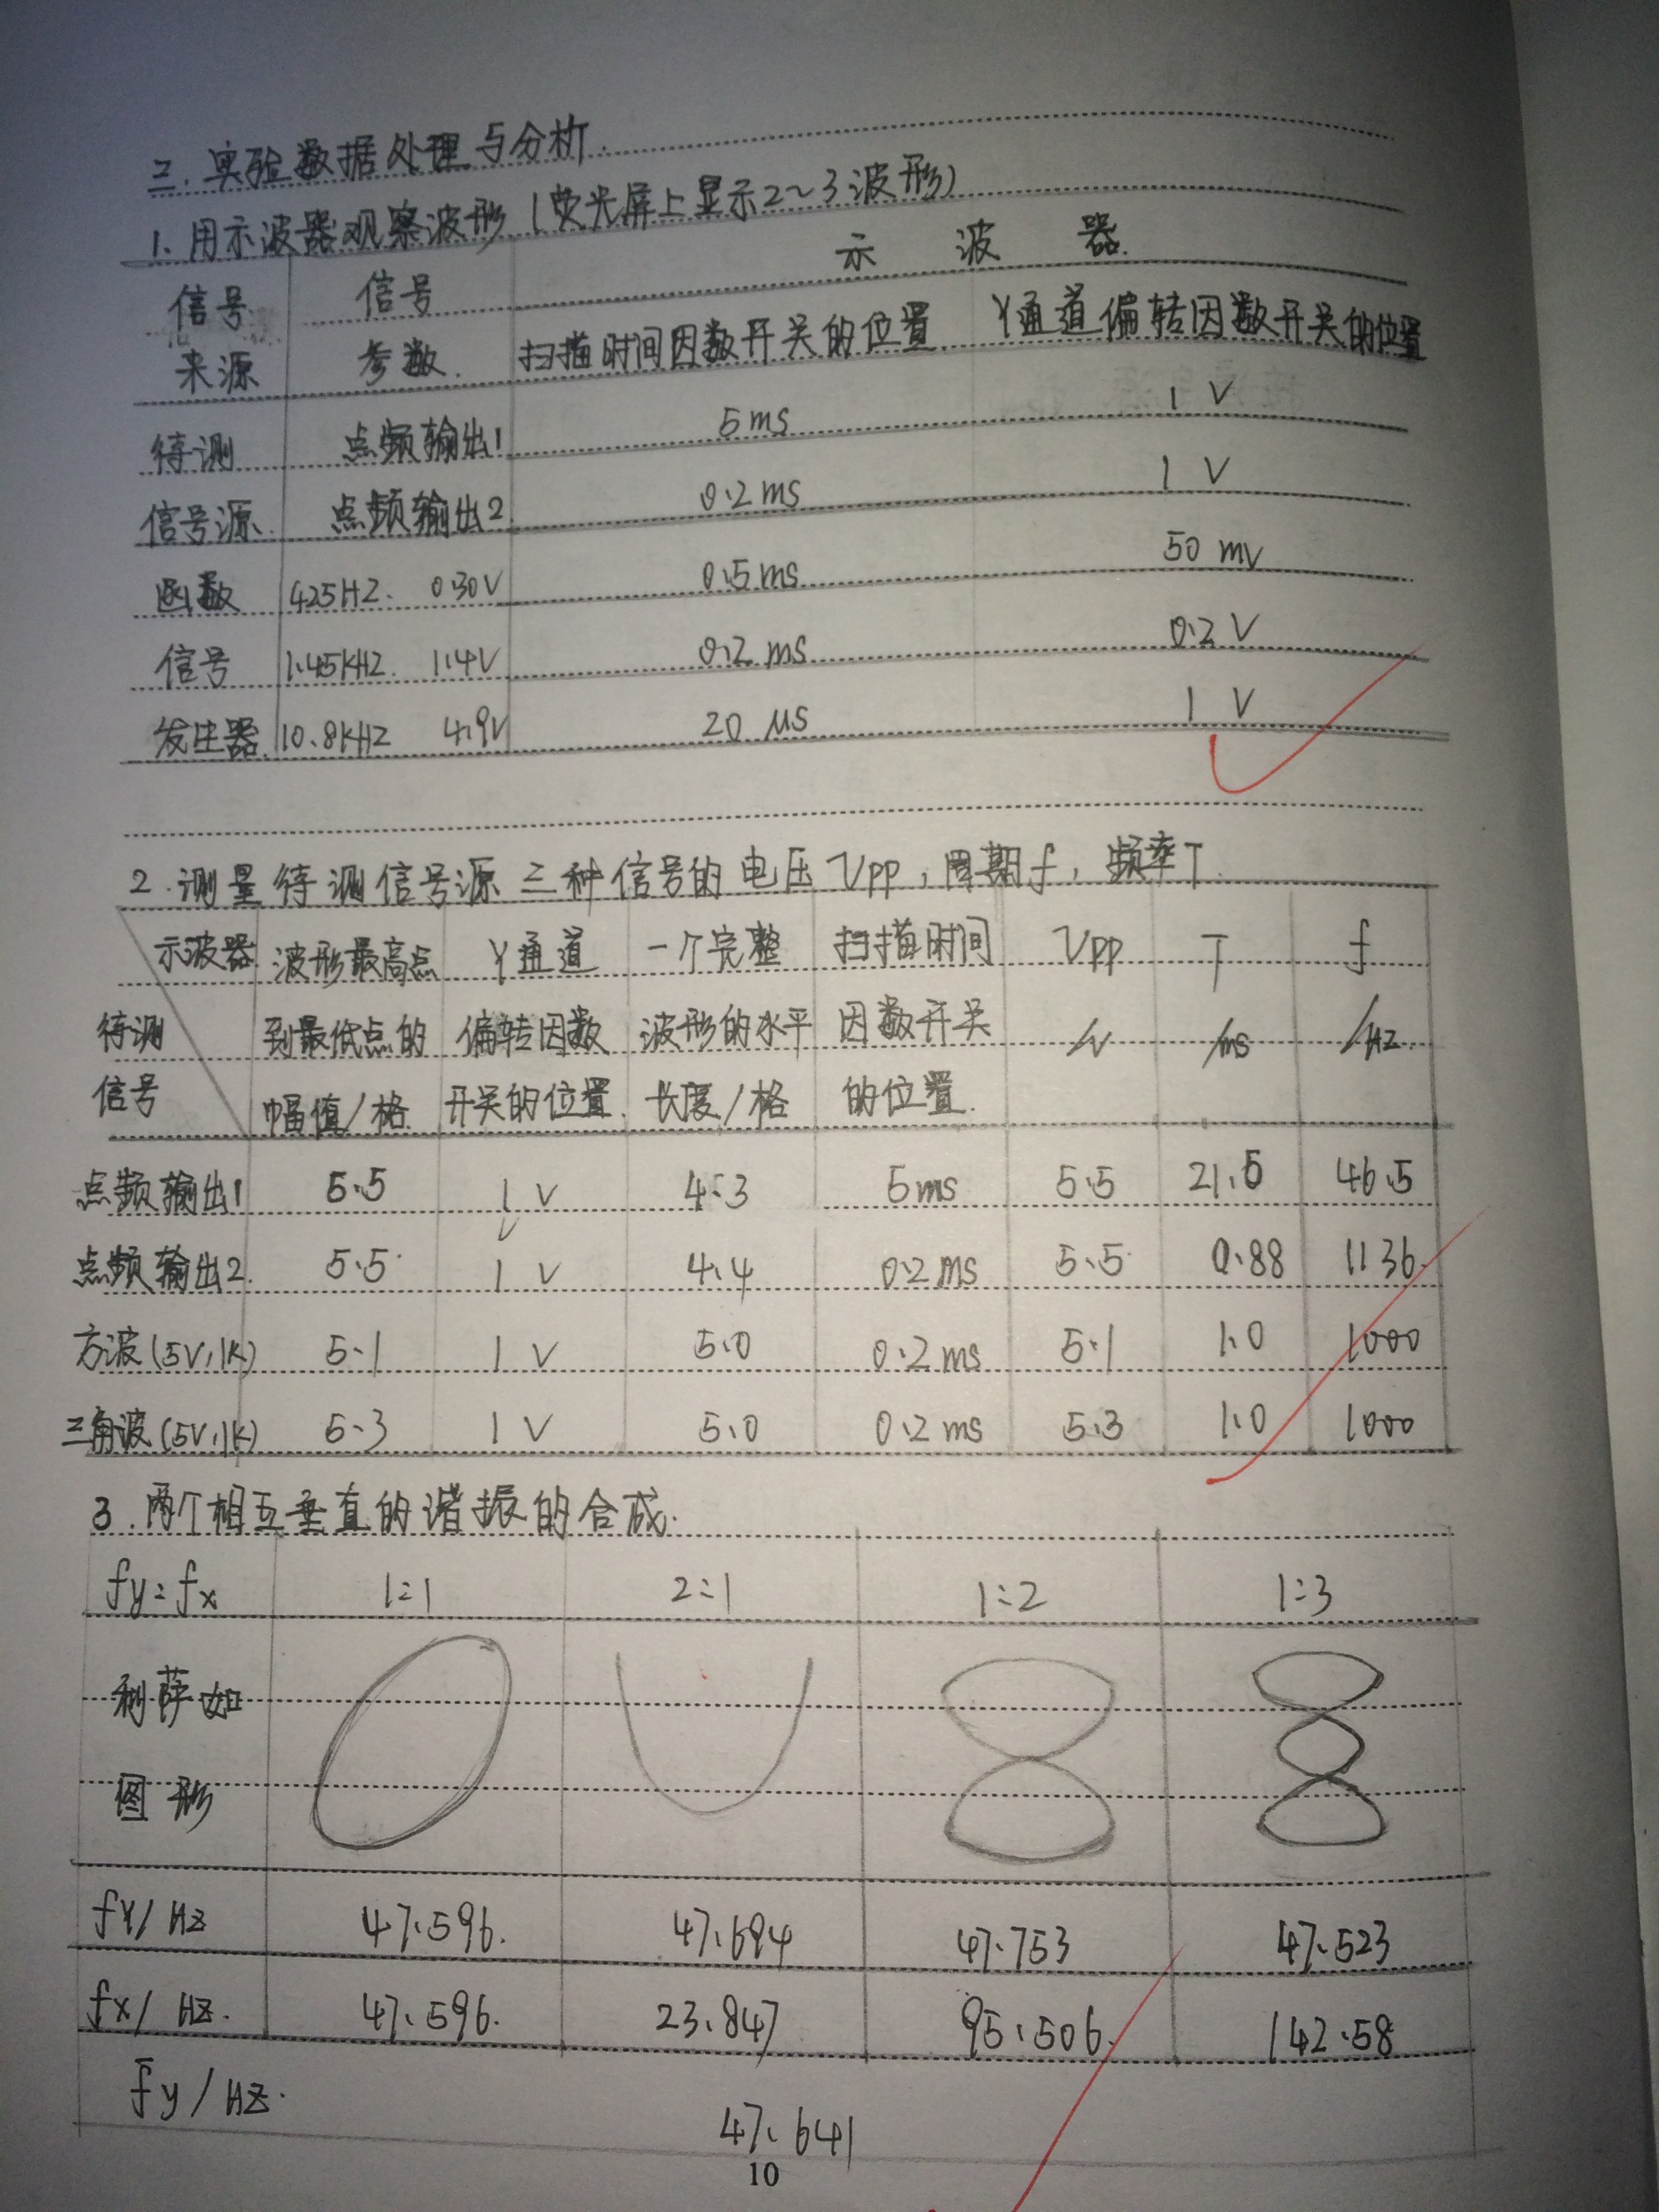 二.实验数据处理与分析.
1.用示波器观察波形(荧光屏上显示2~3波形)
信号 信号 示波器.
来源 参数. 扫描时间因数开关的位置 Y通道偏转因数开关的位置
待测 点频输出1 5ms 1 V
信号源. 点频输出2 0.2ms 1 V
函数 425HZ. 0.30V 0.5ms 50 mV
信号 1.45KHZ. 1.4V 0.2 ms 0.2 V
发生器 10.8KHZ 4.9V 20 μs 1 V
2.测量待测信号源三种信号的电压Vpp,周期f,频率T.
示波器 波形最高点 Y通道 一个完整 扫描时间 Vpp T f
待测 到最低点的 偏转因数 波形的水平 因数开关 /V /ms /HZ.
信号 幅值/格. 开关的位置. 长度/格 的位置.
点频输出1 5.5 1 V 4.3 5ms 5.5 21.5 46.5
点频输出2. 5.5 1 V 4.4 0.2 ms 5.5 0.88 1136
方波(5V,1K) 5.1 1 V 5.0 0.2 ms 5.1 1.0 1000
三角波(5V,1K) 5.3 1 V 5.0 0.2 ms 5.3 1.0 1000
3.两个相互垂直的谐振的合成.
fy:fx 1:1 2:1 1:2 1:3
利萨如
图形
fY/HZ 47.596. 47.694 47.753 47.523
fx/HZ. 47.596. 23.847 95.506. 142.58
f̄y/HZ. 47.641
10